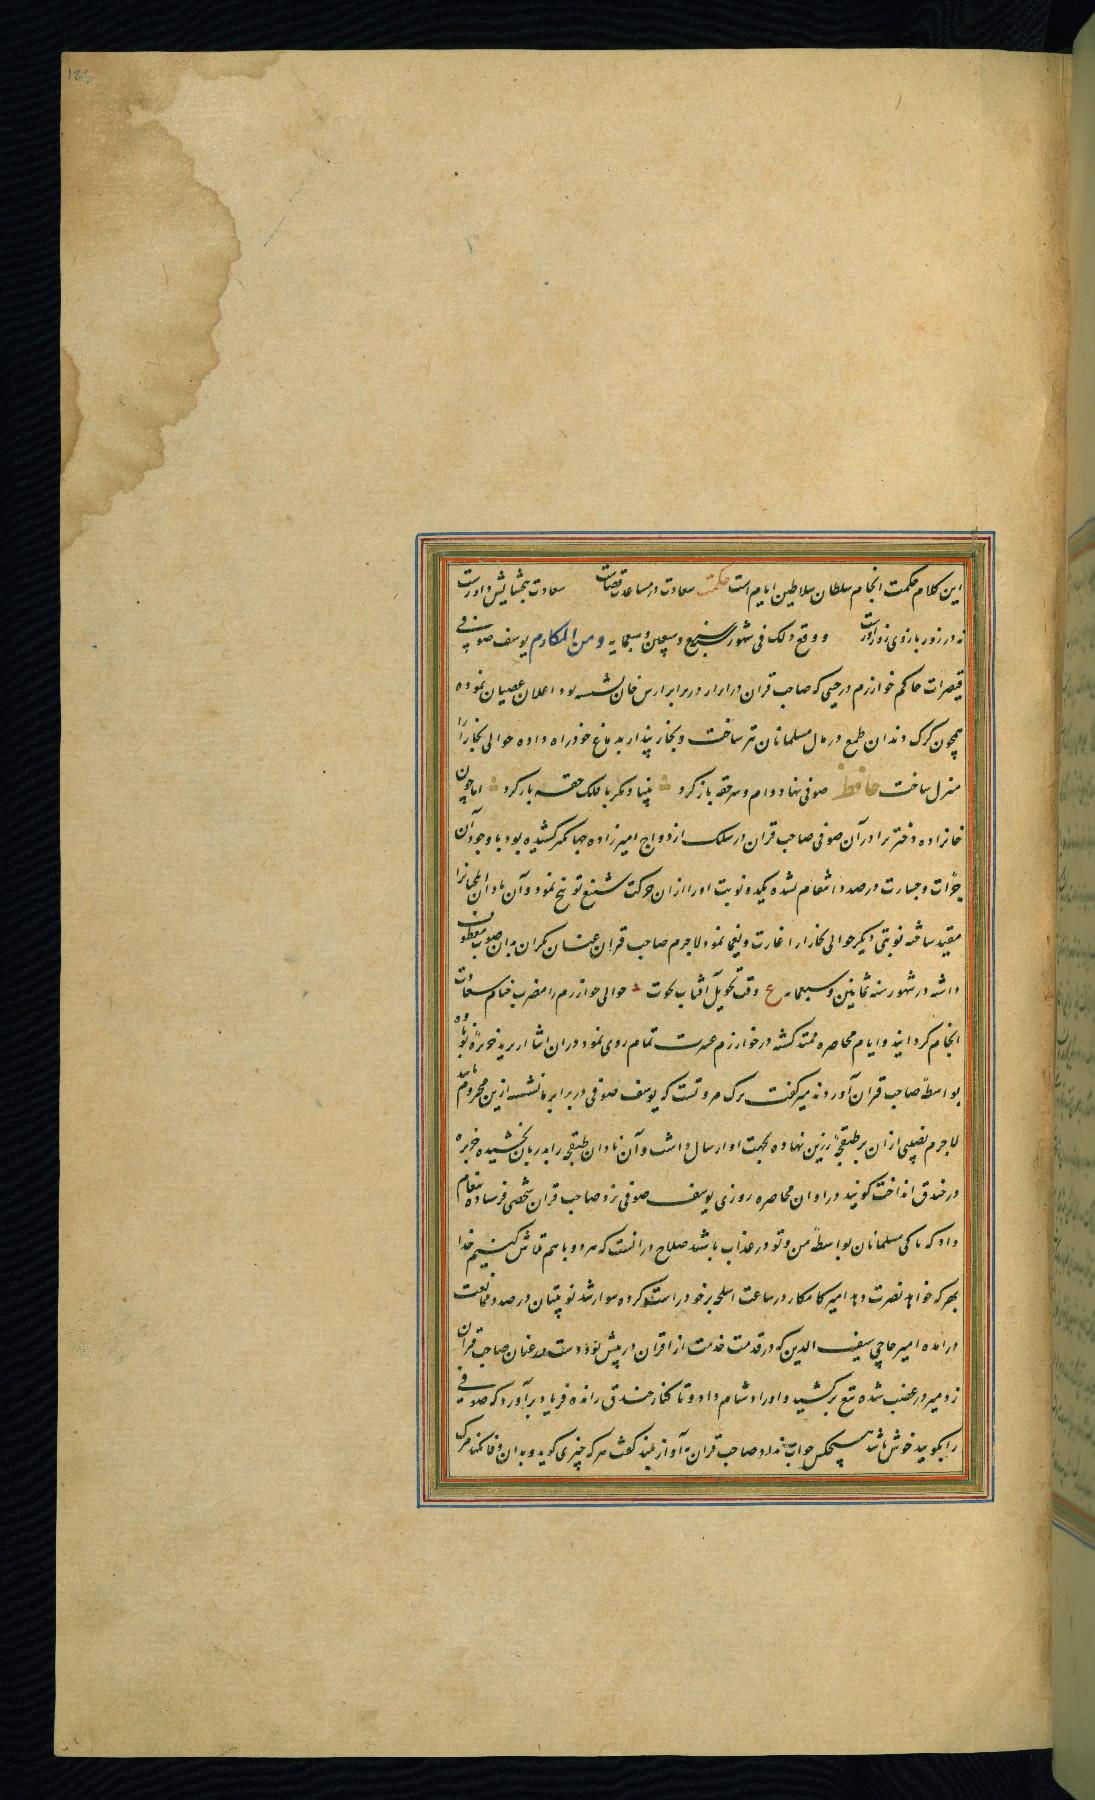 این کلام حکمت انجام سلطان سلاطین ایام است حکمت سعادت در مساعدت قضاست سعادت ببخشایش داورست
نه در زور بازوی زورآورست و وقع ذلک فی شهور سنه سبع و سبعین و سبعمایه و من المکارم یوسف صوفی
حاکم خوارزم در حینی که صاحب قران در اترار در برابر ارس خان نشسته بود اعلان عصیان نموده
همچون کرک دندان طمع در مال مسلمانان تیز ساخت و بخار پندار بدماغ خود راه داده حوالی بخارا را
منزل ساخت حافظ صوفی نهاد دام و سر حقه باز کرد بنیاد مکر با فلک حقه باز کرد اما چون
خانزاده دختر برادر آن صوفی صاحب قران در سلک ازدواج امیرزاده جهانکیر کشیده بود با وجود آن
جرأت و جسارت در صدد انتقام نشده یکدو نوبت اورا ازان حرکت شنیع توبیخ نمود و آن نادان ایلچیانرا
مقید ساخته نوبتی دیکر حوالی بخارا را غارت و یغما نمود لاجرم صاحب قران عنان یکران به آن صوب معطوف
داشته در شهور سنه ثمانین و سبعمایه ع وقت تحویل آفتاب بحوت حوالی خوارزم را مضرب خیام سعادت
انجام کردانید و ایام محاصره ممتد کشته در خوارزم عسرت تمام روی نمود در ان اثنا از ترمد خربزه نوباوه
بواسطهٔ صاحب قران آوردند میر کفت ترک مروتست که یوسف صوفی در برابر ما نشسته ازین محروم ماند
لاجرم نصیبی ازان بر طبقچهٔ زرین نهاده بجهت او ارسال داشت و آن نادان طبقچه را بدربان بخشیده خربزه
در خندق انداخت کویند در اوان محاصره روزی یوسف صوفی نزد صاحب قران شخصی فرستاده پیغام
داد که تا کی مسلمانان بواسطهٔ من و تو در عذاب باشند صلاح در انست که هر دو با هم تلاش کنیم خدا
بهر که خواهد نصرت دهد امیر کامکار در ساعت اسلحه بر خود راست کرده سوار شد نوئینان در صدد ممانعت
درآمده امیر حاجی سیف الدین که در قدمت خدمت از اقران در پیش بود دست در عنان صاحب قران
زد میر در غضب شده تیغ برکشید و اورا دشنام داد و تا کنار خندق رانده فریاد برآورد که صوفی
را بکویید خوش باشد هیچکس جواب نداد صاحب قران به آواز بلند کفت هر که چیزی کوید و بدان وفا نکند مرک